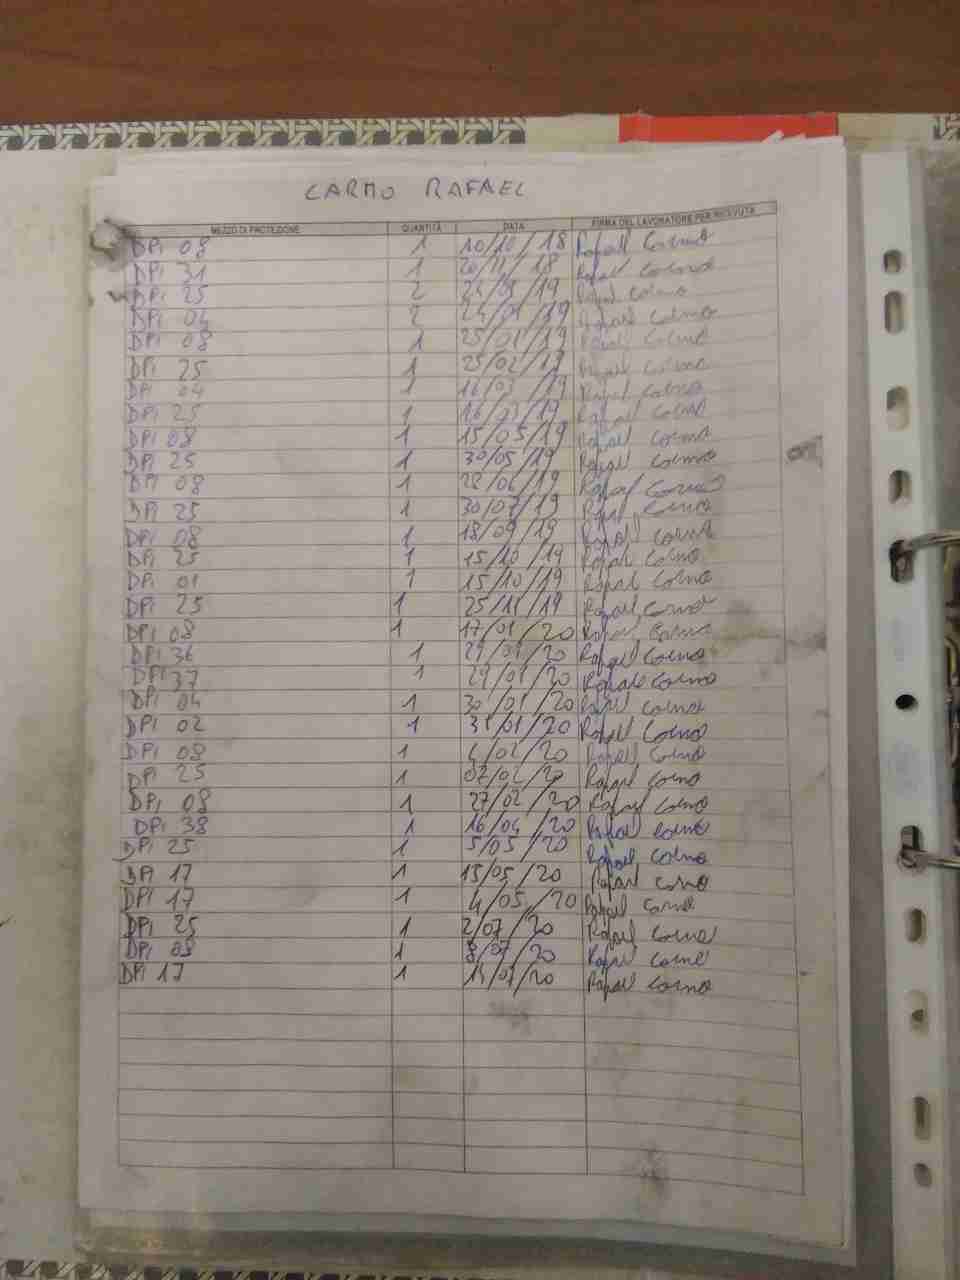 CARMO RAFAEL
MEZZO DI PROTEZIONE QUANTITÀ DATA FIRMA DEL LAVORATORE PER RICEVUTA
DPi 08 1 10/10/18 Rafael Carmo
DPi 31 1 20/11/18 Rafael Carmo
DPi 25 2 19 Rafael Carmo
DPi 04 2 24/01/19 Rafael Carmo
DPi 08 1 25/01/19 Rafael Carmo
DPi 25 1 25/02/19 Rafael Carmo
DPi 04 1 16/03/19 Rafael Carmo
DPi 25 1 16/03/19 Rafael Carmo
DPi 08 1 15/05/19 Rafael Carmo
DPi 25 1 30/05/19 Rafael Carmo
DPi 08 1 28/06/19 Rafael Carmo
DPi 25 1 30/07/19 Rafael Carmo
DPi 08 1 18/09/19 Rafael Carmo
DPi 25 1 15/10/19 Rafael Carmo
DPi 01 1 15/10/19 Rafael Carmo
DPi 25 1 25/11/19 Rafael Carmo
DPi 08 1 17/01/20 Rafael Carmo
DPi 36 1 29/01/20 Rafael Carmo
DPi 37 1 29/01/20 Rafael Carmo
DPi 04 1 30/01/20 Rafael Carmo
DPi 02 1 31/01/20 Rafael Carmo
DPi 08 1 4/02/20 Rafael Carmo
DPi 25 1 07/02/20 Rafael Carmo
DPi 08 1 27/02/20 Rafael Carmo
DPi 38 1 16/04/20 Rafael Carmo
DPi 25 1 5/05/20 Rafael Carmo
DPi 17 1 15/05/20 Rafael Carmo
DPi 17 1 4/05/20 Rafael Carmo
DPi 25 1 2/07/20 Rafael Carmo
DPi 08 1 8/07/20 Rafael Carmo
DPi 17 1 14/07/20 Rafael Carmo